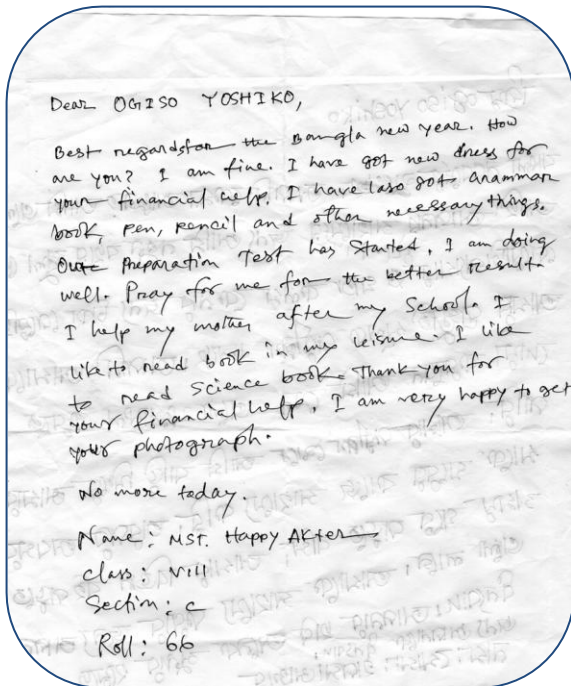 Dear OGISO YOSHIKO,
Best regardsfor the Bangla new year. How
are you? I am fine. I have got new dress for
your financial help. I have laso got Grammar
book, pen, pencil and other necessary things.
Our Preparation Test has started. I am doing
well. Pray for me for the better result.
I help my mother after my School. I
like to read book in my leisure. I like
to read Science book. Thank you for
your financial help. I am very happy to get
your photograph.
No more today.
Name: MST. Happy Akter
Class: VIII
Section: C
Roll: 66